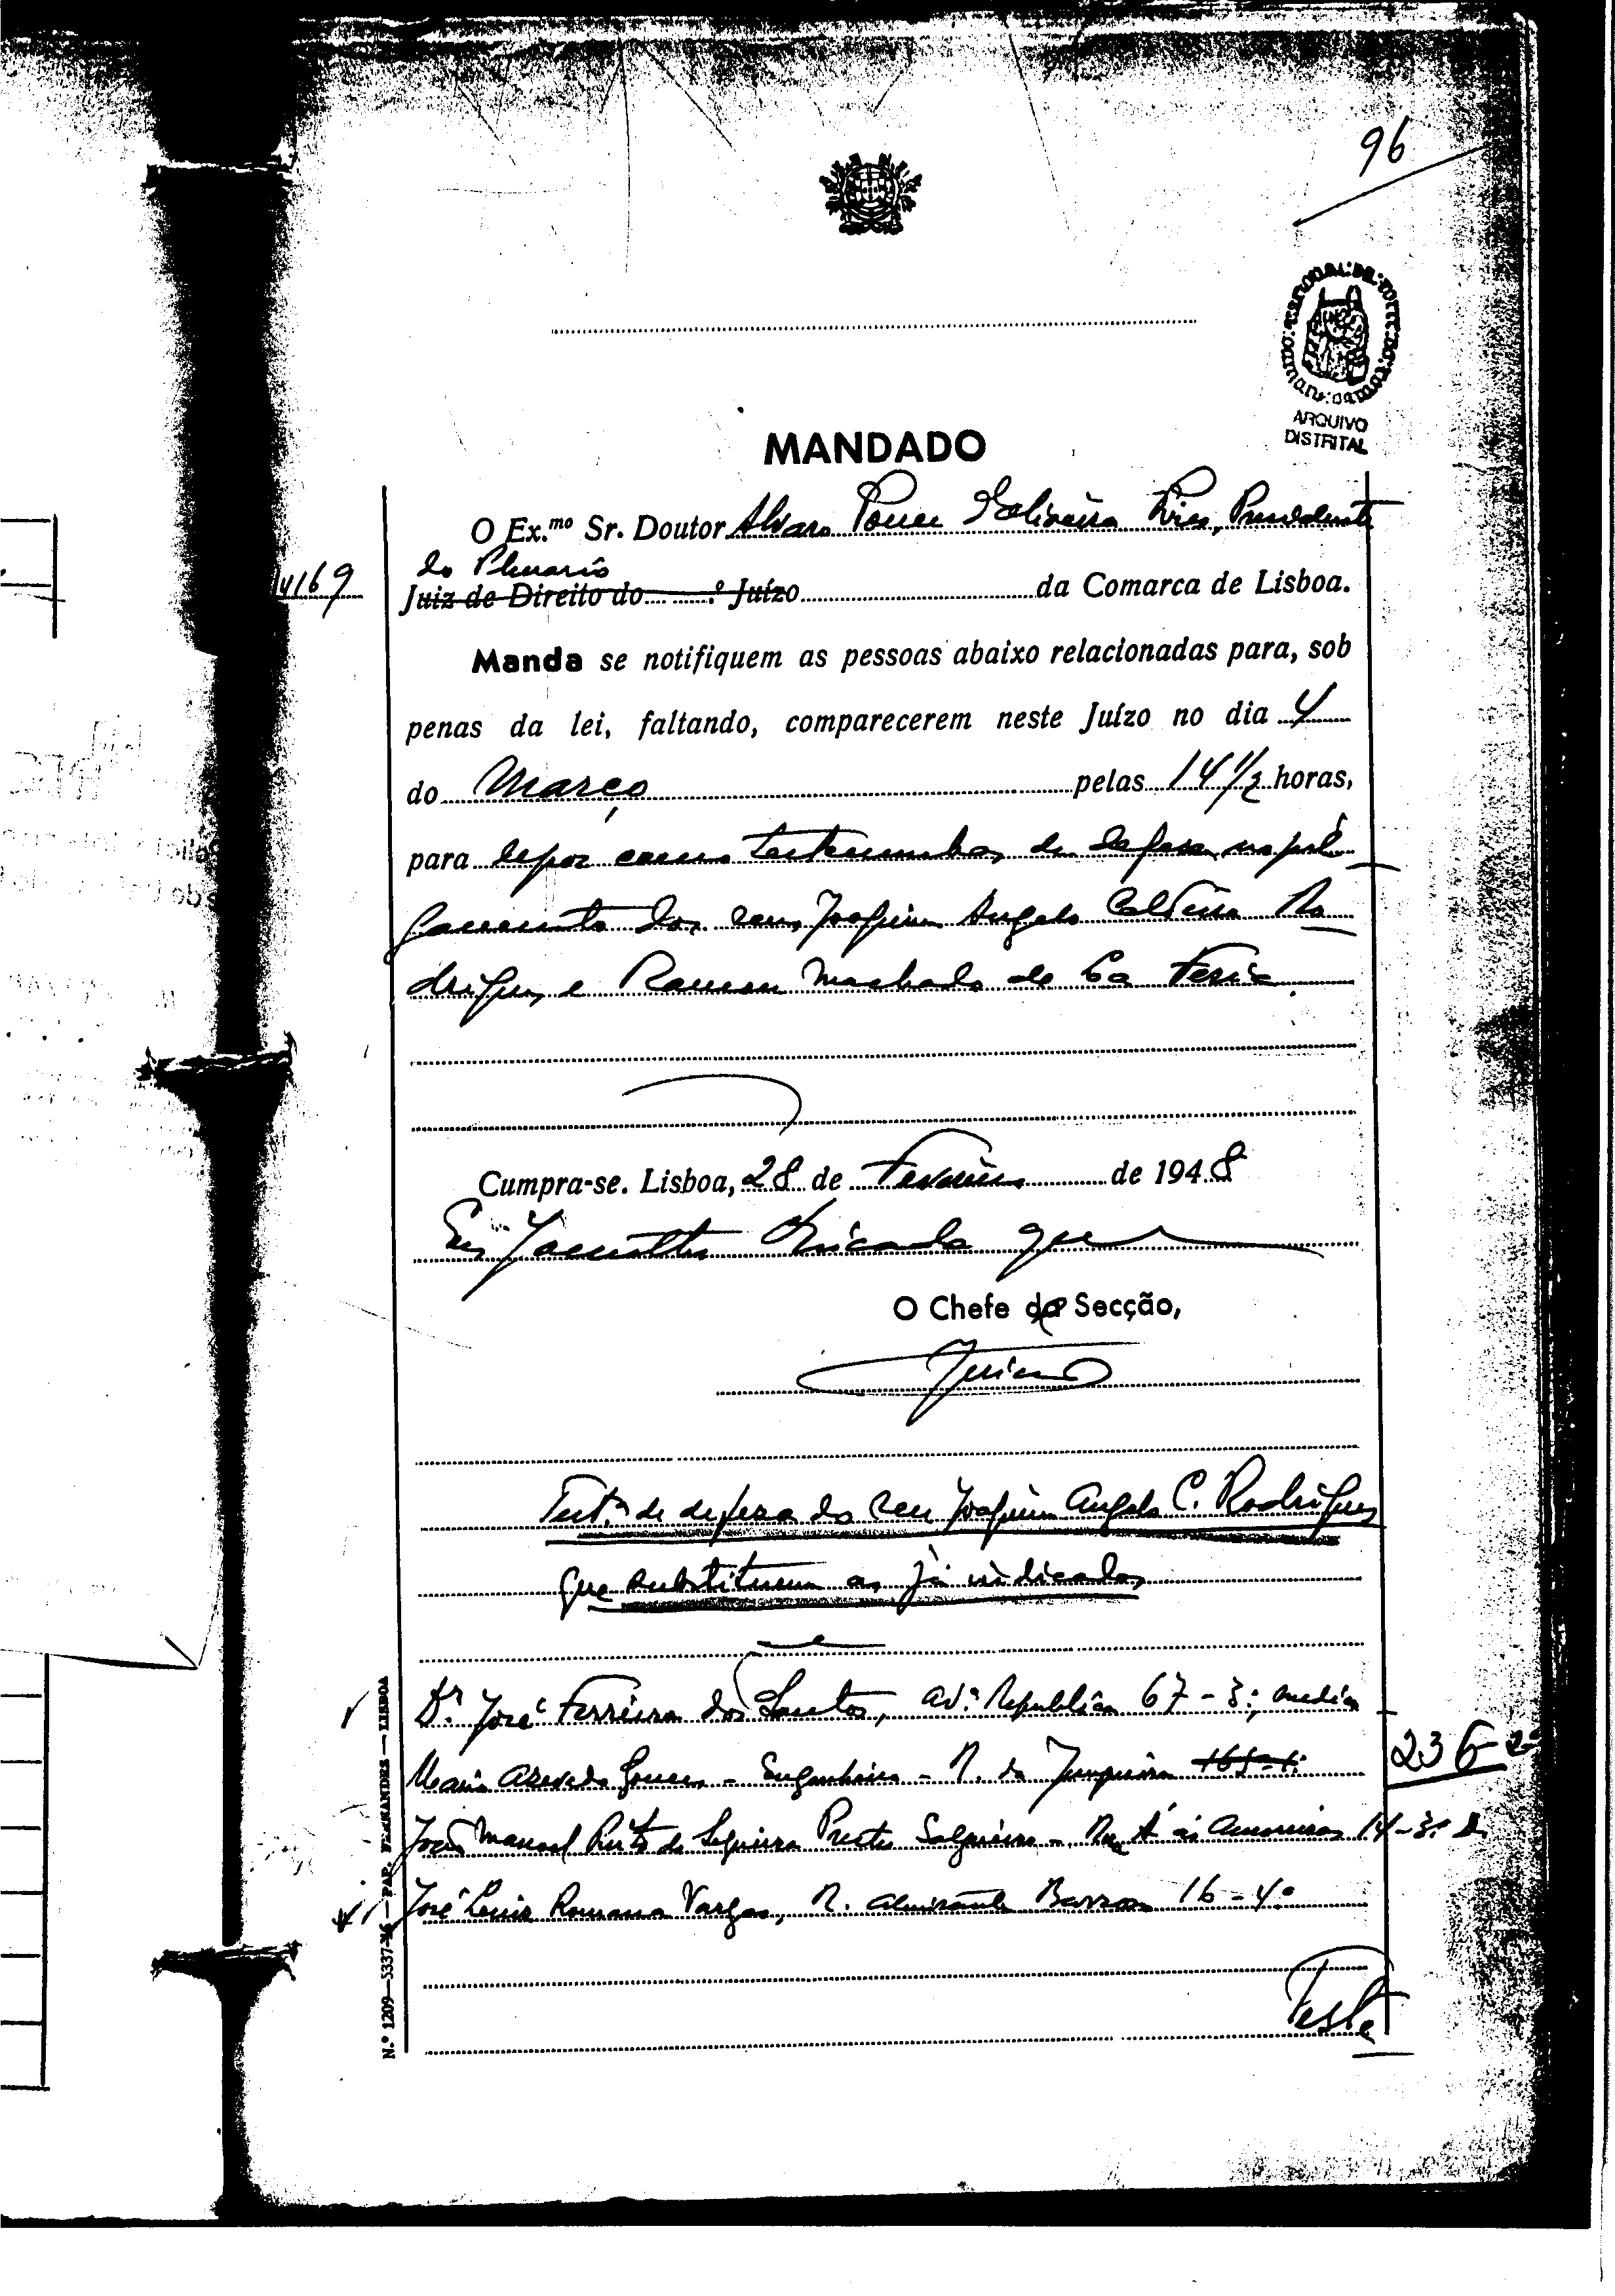 96
ARQUIVO
DISTRITAL
MANDADO
O Ex.mo Sr. Doutor Alvaro Ponce d'Oliveira Pires, Presidente
do Plenario
4169
Juiz de Direito do .º Juízo da Comarca de Lisboa.
Manda se notifiquem as pessoas abaixo relacionadas para, sob
penas da lei, faltando, comparecerem neste Juízo no dia 4
do Março pelas 14 1/2 horas,
para depor como testemunhas de defesa no jul
gamento dos reus Joaquim Angelo Caldeira Ro
drigues e Ramon Machado de La Feria
Cumpra-se. Lisboa, 28 de Fevereiro de 1948
Eu,
O Chefe da Secção,
Test.as de defesa do reu Joaquim Angelo C. Rodrigues
que substituem as já indicadas
Dr. José Ferreira dos Santos, Av.ª Republica 67-3º, medico
Mario Azevedo Gomes - Engenheiro - R. da Junqueira
236-2º
João Manoel Pinto de Sequeira Prestes Salgueiro - Rua ás Amoreiras 14-3º D.
José Luis Romana Vargas, R. Almirante Barroso 16-4º
Teste
N.º 1209—5337- — PAP. FERNANDES — LISBOA